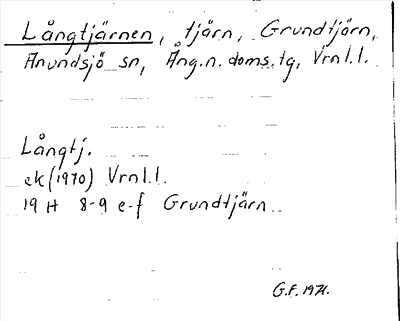 Långtjärnen, tjärn, Grundtjärn,
Anundsjö sn, Ång.n.doms.tg, Vrnl.l.
Långtj.
ek (1970) Vrnl.l.
19 H 8-9 e-f Grundtjärn
G.F. 1971.